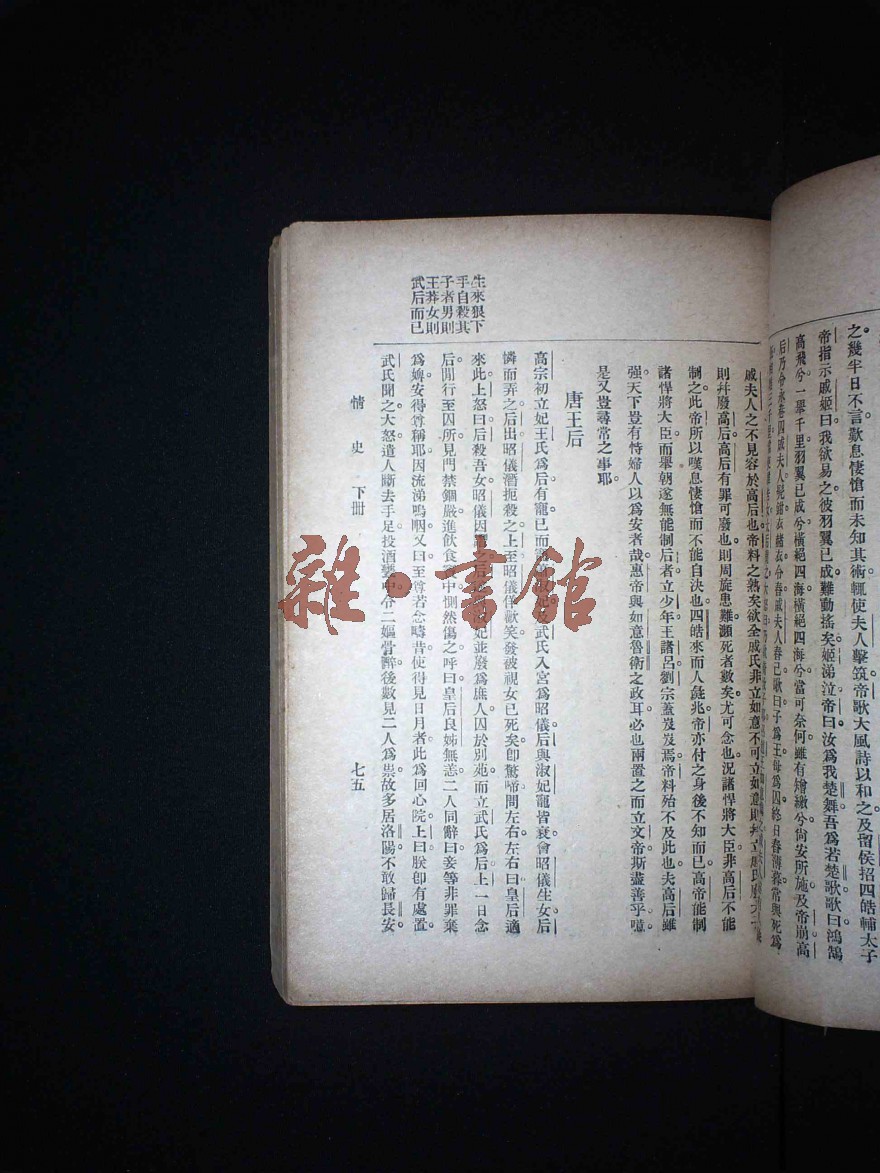 之幾半日不言歎息悽愴而未知其術輒使夫人擊筑帝歌大風詩以和之及留侯招四皓輔太子
帝指示戚姬曰我欲易之彼羽翼已成難動搖矣姬涕泣帝曰汝爲我楚舞吾爲若楚歌歌曰鴻鵠
高飛兮一舉千里羽翼已成兮橫絕四海橫絕四海兮當可奈何雖有矰繳兮尙安所施及帝崩高
戚夫人之不見容於高后也帝料之熟矣欲全戚氏非立如意不可立如意則
則幷廢高后高后有罪可廢也則周旋患難瀕死者數矣尤可念也況諸悍將大臣非高后不能
制之此帝所以嘆息悽愴而不能自決也四皓來而人彘兆帝亦付之身後不知而已高帝能制
諸悍將大臣而舉朝遂無能制后者立少年王諸呂劉宗蓋岌岌焉帝料殆不及此也夫高后雖
强天下豈有恃婦人以爲安者哉惠帝與如意魯衛之政耳必也兩置之而立文帝斯盡善乎噫
是又豈尋常之事耶
唐王后
高宗初立妃王氏爲后有寵已而淑妃及武氏入宮爲昭儀后與淑妃寵皆衰會昭儀生女后
憐而弄之后出昭儀潛扼殺之上至昭儀佯歡笑發被視女已死矣卽驚啼問左右左右曰皇后適
來此上怒曰后殺吾女昭儀因之后淑妃並廢爲庶人囚於別苑而立武氏爲后上一日念
后閒行至囚所見門禁錮嚴進飮食中惻然傷之呼曰皇后良姊無恙二人同辭曰妾等非罪棄
爲婢安得尊稱耶因流涕嗚咽又曰至尊若念疇昔使得見日月者此爲回心院上曰朕卽有處置
武氏聞之大怒遣人斷去手足投酒甕中令二嫗骨醉後數見二人爲祟故多居洛陽不敢歸長安
生來狠下
手自殺其
子者男則
王莽女則
武后而已
情史 下冊 七五
雜·書館